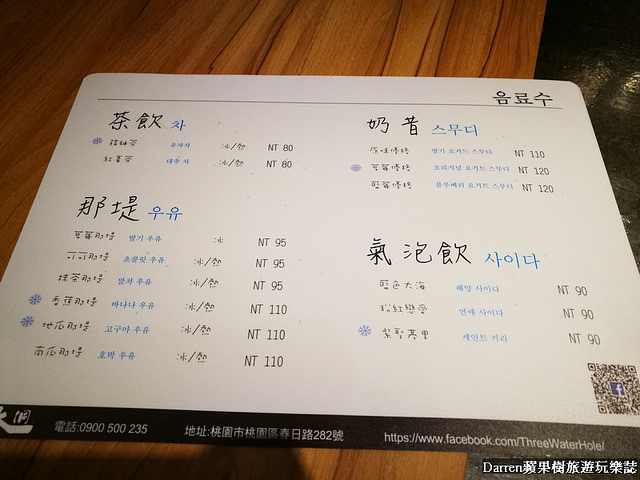 음료수
茶飲 차
韓柚茶 유자차 冰/熱 NT 80
紅棗茶 대추 차 冰/熱 NT 80
那堤 우유
草莓那堤 딸기 우유 冰 NT 95
可可那堤 초콜릿 우유 冰/熱 NT 95
抹茶那堤 말차 우유 冰/熱 NT 95
香蕉那堤 바나나 우유 冰/熱 NT 110
地瓜那堤 고구마 우유 冰/熱 NT 110
南瓜那堤 호박 우유 冰/熱 NT 110
奶昔 스무디
原味優格 딸기 요거트 스무디 NT 110
草莓優格 오리지널 요거트 스무디 NT 120
藍莓優格 블루베리 요거트 스무디 NT 120
氣泡飲 사이다
藍色大海 해양 사이다 NT 90
粉紅戀愛 연애 사이다 NT 90
紫聖基里 세인트 키리 NT 90
水洞
電話:0900 500 235
地址:桃園市桃園區春日路282號
https://www.facebook.com/ThreeWaterHole/
Darren蘋果樹旅遊玩樂誌